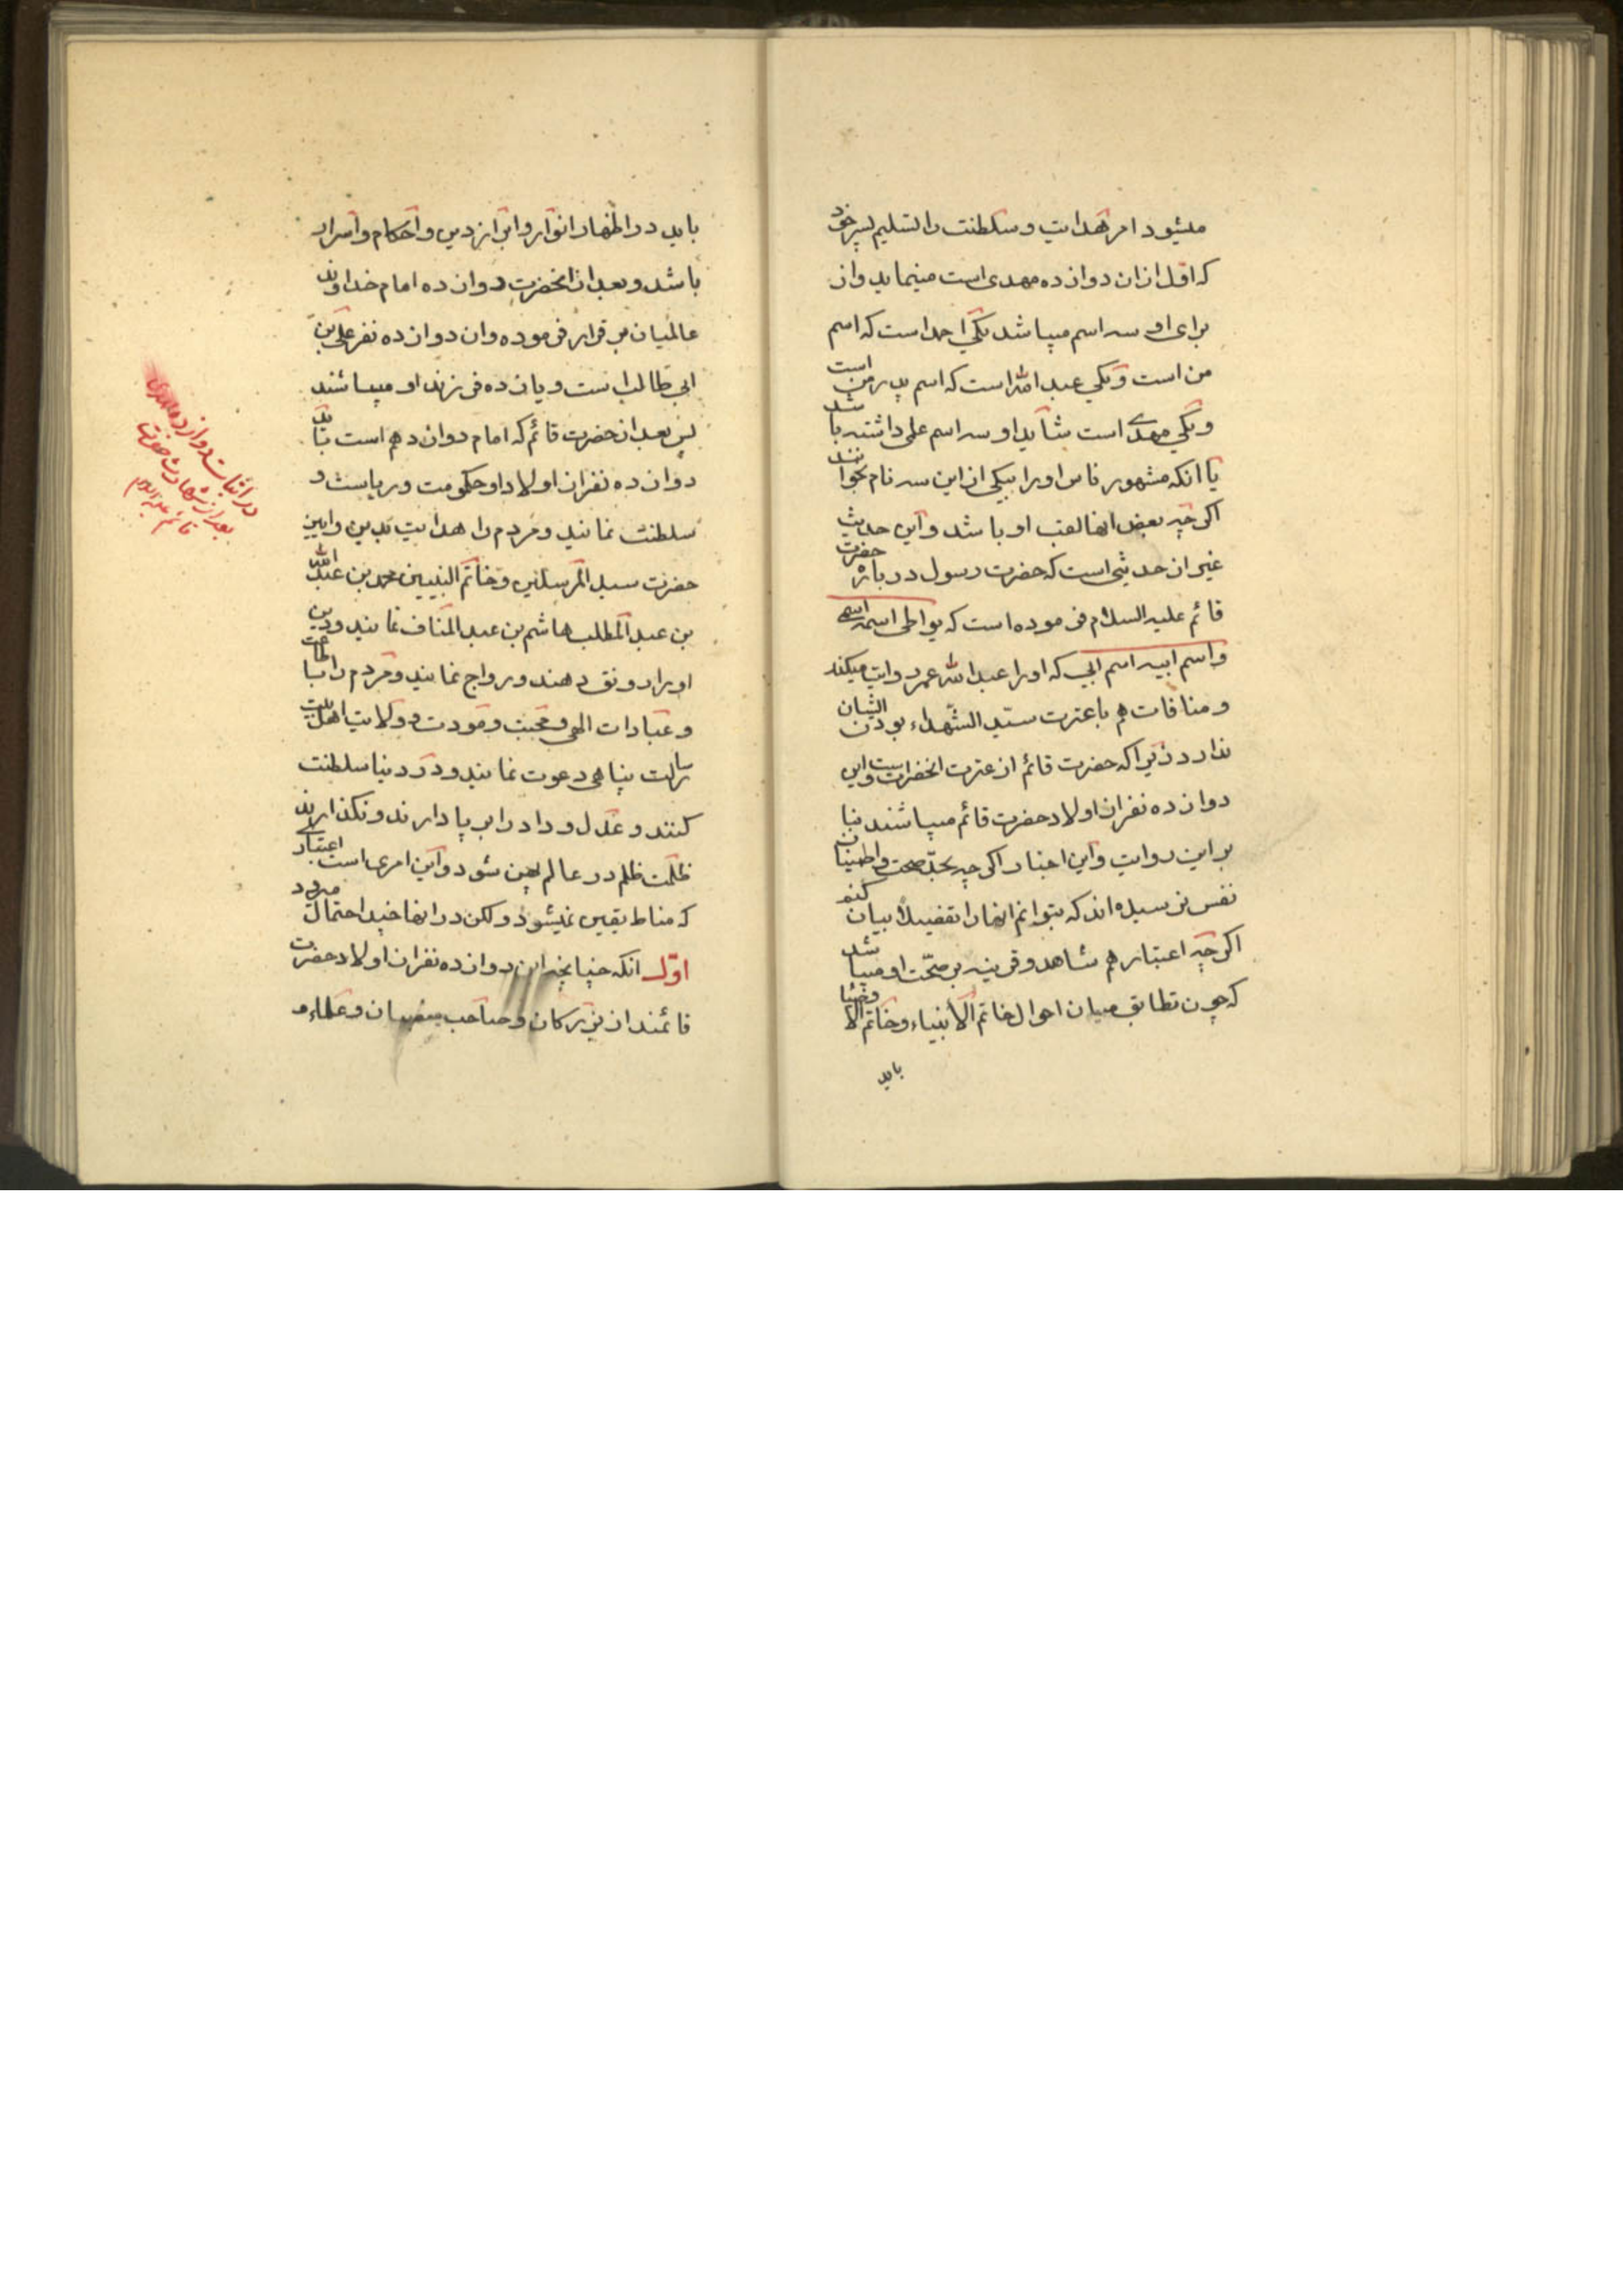 میشود امر هدایت و سلطنت را تسلیم پسر خود
که اوّل ازان دوازده مهدی است مینماید وان
برای او سه اسم میباشد یکی احمد است که اسم
من است و یکی عبد الله است که اسم پدر من است
و یکی مهدی است شاید او سه اسم علمی داشته باشد
یا انکه مشهور ناس او را بیکی ازاین سه نام بخوانند
اکرچه بعض انها لقب او باشد و این حدیث
غیر ان حدیثی است که حضرت رسول درباره حضرت
قائم علیه السلام فرموده است که یواطی اسمه اسمی
واسم ابیه اسم ابی که اورا عبد الله عمر روایت میکند
و منافات هم با عترت سیّد الشّهداء بودن ایشان
ندارد زیرا که حضرت قائم از عترت انحضرت است و این
دوازده نفر از اولاد حضرت قائم میباشند بنا
بر این روایت و این اخبار اکرچه بحدّ صحت و اطمینان
نفس نرسیده اند که بتوانم انها را تفضیلاً بیان کنم
اکرچه اعتبار هم شاهد و قرینه بر صحّت او میباشد
که چون تطابق میان احوال خاتم الأنبیاء و خاتم الاوصیا
باید
باید در اظهار انوار و ابراز دین و احکام و اسرار
باشد و بعد از انحضرت دوازده امام خداوند
عالمیان برقرار فرموده وان دوازده نفر علی بن
ابی طالب است و یازده فرزند او میباشند
پس بعد از حضرت قائم که امام دوازدهم است باید
دوازده نفر از اولاد او حکومت و ریاست و
سلطنت نمایند و مردم را هدایت بدین و ایین
حضرت سید المرسلین و خاتم النبیین محمد بن عبد الله
بن عبد المطلب هاشم بن عبد المناف نمایند و دین
او را رونق دهند و رواج نمایند و مردم را بطاعت
و عبادات الهی و محبت و مودت و ولایت اهل بیت
رسالت پناهی دعوت نمایند و در دنیا سلطنت
کنند و عدل و داد را بر پا دارند و نکذارند
ظلمت ظلم در عالم پهن شود و این امری است اعتبار
که مناط یقین نمیشود ولکن در انها چند احتمال میرود
اوّل انکه چنانچه این دوازده نفر از اولاد حضرت
قائمند از بزرکان و صاحب منصبان و علماء
در اثبات دوازده مهدی
بعد از شهادت حضرت
قائم علیه السلام